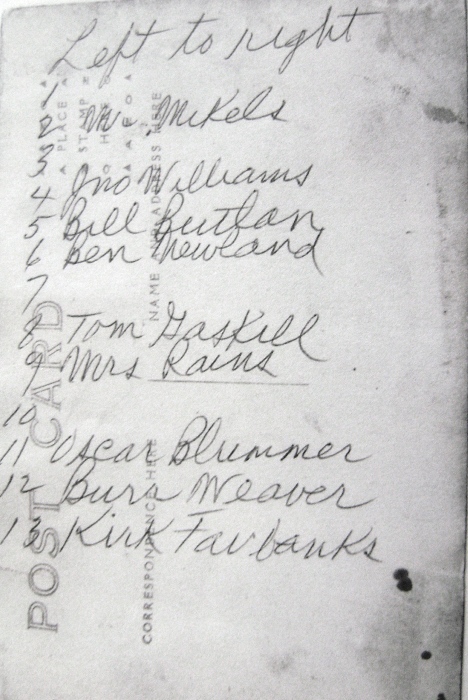 Left to right
1
2 Mr. Mikels
3
4 Jno Williams
5 Bill Butlan
6 Ben Newland
7
8 Tom Gaskill
9 Mrs Rains
10
11 Oscar Blummer
12 Burr Weaver
13 Kirk Fairbanks
POST CARD
CORRESPONDENCE HERE
NAME AND ADDRESS HERE
PLACE
STAMP
HERE